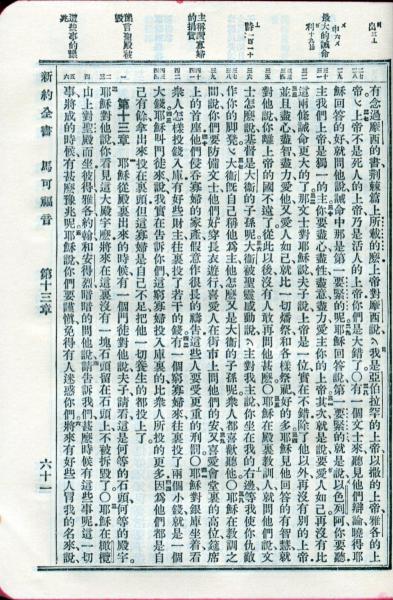 有念過摩西的書荊棘篇上所載的麼上帝對摩西說我是亞伯拉罕的上帝以撒的上帝雅各的上
帝上帝不是死人的上帝乃是活人的上帝你們是大錯了○有一個文士來聽見他們辯論曉得耶
穌回答的好就問他說誡命中那是第一要緊的呢耶穌回答說第一要緊的就是說以色列阿你要聽
主我們上帝是獨一的主你要盡心盡性盡意盡力愛主你的上帝其次就是說要愛人如己再沒有比
這兩條誡命更大的了那文士對耶穌說夫子說上帝是一位實在不錯除了他以外再沒有別的上帝
並且盡心盡智盡力愛他又愛人如己就比一切燔祭和各樣祭祀好的多耶穌見他回答的有智慧就
對他說你離上帝的國不遠了從此以後沒有人敢再問他甚麼○耶穌在殿裏教訓人就問他們說文
士怎麼說基督是大衛的子孫呢大衛被聖靈感動說主對我主說你坐在我的右邊等我使你仇敵
作你的脚凳大衛旣自己稱他爲主他怎麼又是大衛的子孫呢衆人都喜歡聽他○耶穌在教訓之
間說你們要防備文士他們好穿長衣遊行喜愛人在街市上問他們的安又喜愛會堂裏的高位筵席
上的首座他們侵吞寡婦的家產假意作很長的禱告這些人要受更重的刑罰○耶穌對銀庫坐着看
衆人怎樣投錢入庫有好些財主往裏投了若干的錢有一個窮寡婦來往裏投了兩個小錢就是一個
大錢耶穌叫門徒來說我實在告訴你們這窮寡婦投入庫裏的比衆人所投的更多因爲他們都是自
己有餘拿出來投在裏頭但這寡婦是自己不足把他一切養生的都投上了
第十三章 耶穌從殿裏出來的時候有一個門徒對他說夫子請看這是何等的石頭何等的殿宇
耶穌對他說你看見這大殿宇麼將來在這裏沒有一塊石頭留在石頭上不被拆毀了○耶穌在橄欖
山上對聖殿而坐彼得雅各約翰和安得烈暗暗的問他說請告訴我們甚麼時候有這些事呢這一切
事將成的時候有甚麼豫兆呢耶穌說你們要謹愼免得有人迷惑你們將來有好些人冒我的名來說
新約全書 馬可福音 第十三章 六十一